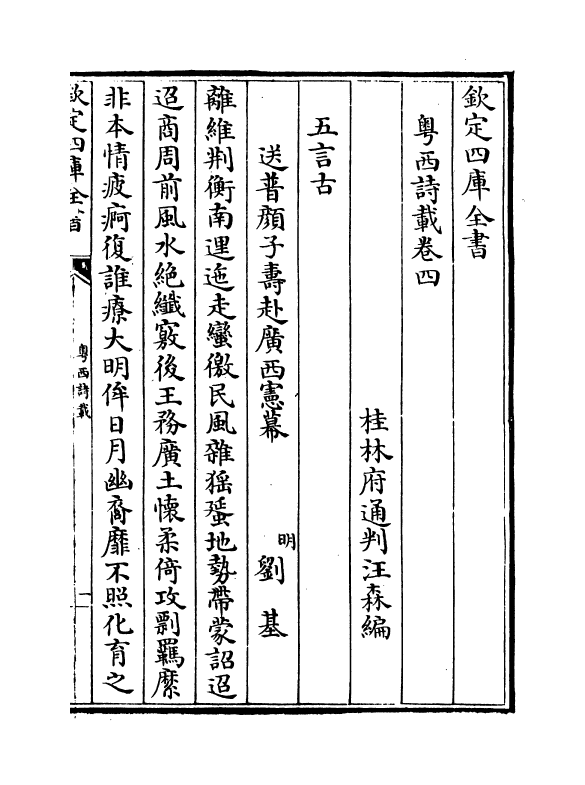 欽定四庫全書
粤西詩載卷四
桂林府通判汪森編
五言古
送普顔子壽赴廣西憲幕 明 劉基
離維荆衡南邐迤走蠻徼民風雜猺蜑地勢帶蒙詔迢
迢商周前風水絶纖竅後王務廣土懷柔倚攻剽羈縻
非本情疲痾復誰療大明侔日月幽裔靡不照化育之
欽定四庫全書
粤西詩載
一